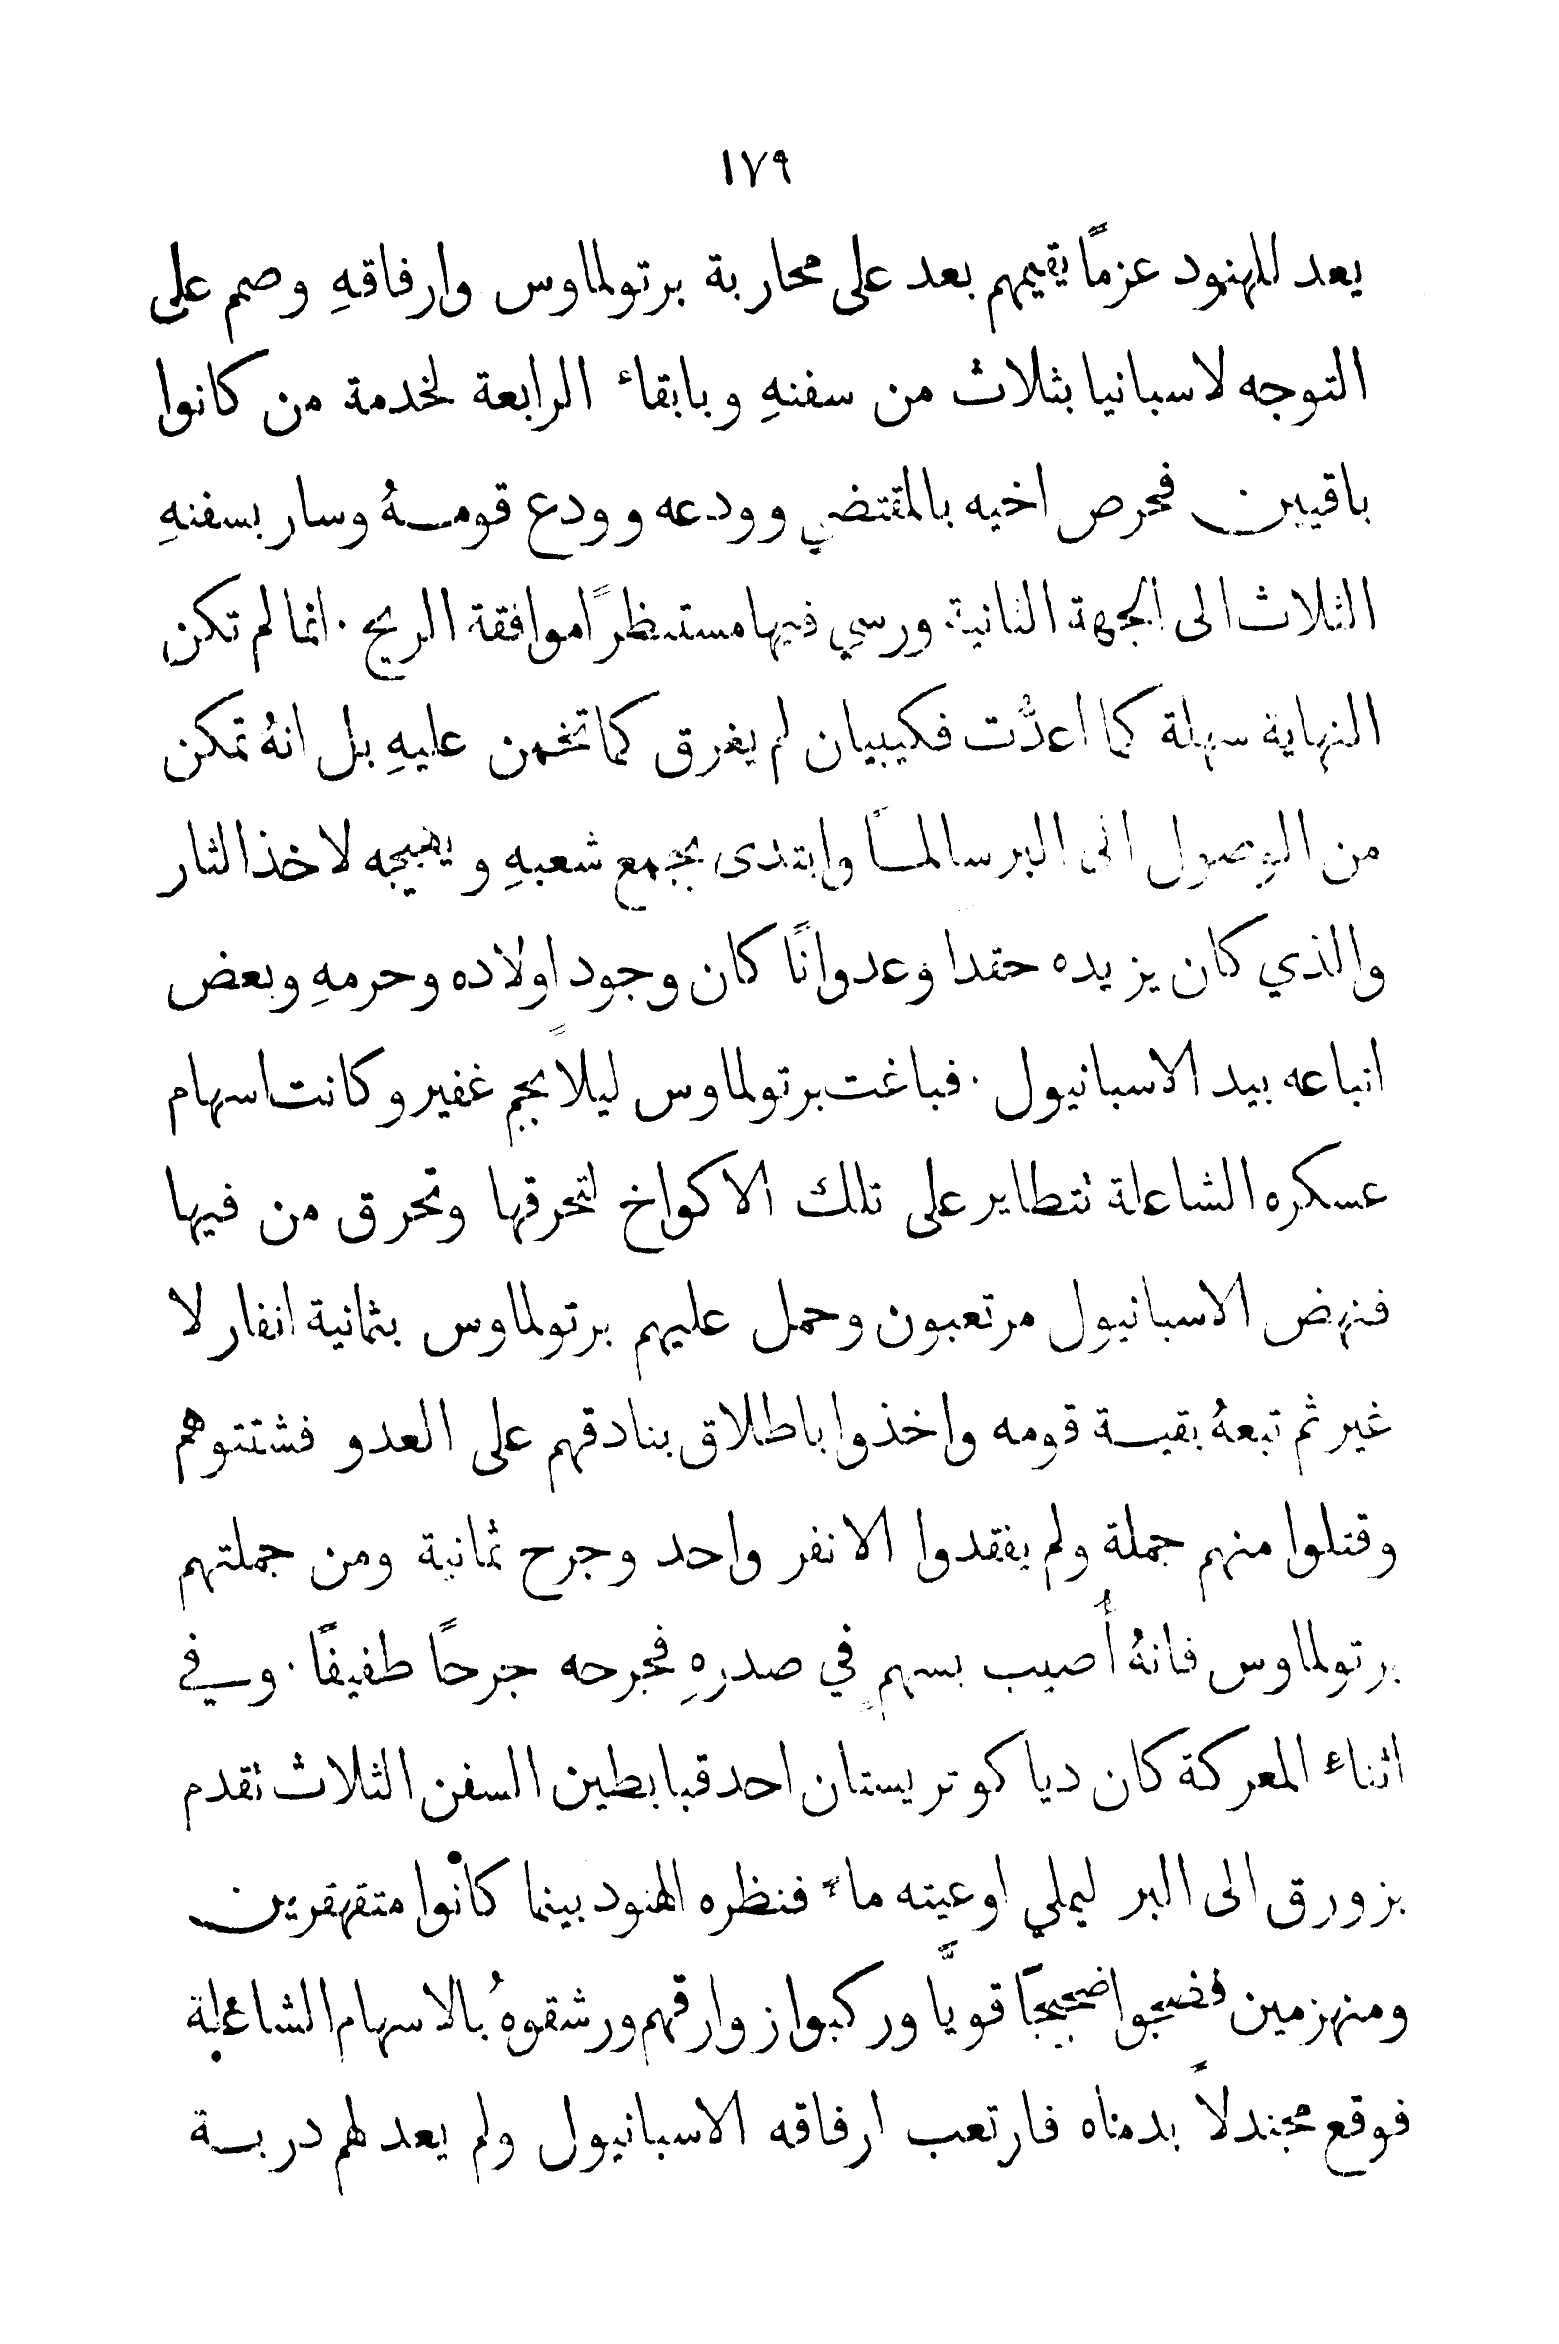 ١٧٩
يعد للهنود عزمًا يقيمهم بعد على محاربة برتولماوس وارفاقهِ وصمم على
التوجه لاسبانيا بثلاث من سفنهِ وبابقاء الرابعة لخدمة من كانوا
باقيين فحرص اخيه بالمقتضي وودعه وودع قومهُ وسار بسفنهِ
الثلاث الى الجهة الثانية ورسي فيها مستنظرًا موافقة الريح ٠ انما لم تكن
النهاية سهلة كما اعدَّت فكيبيان لم يغرق كما تخمن عليهِ بل انهُ تمكن
من الوصول الى البر سالمًا وابتدى بجمع شعبهِ ويهيجه لاخذ الثار
والذي كان يزيده حقدا وعدوانًا كان وجود اولاده وحرمهِ وبعض
اتباعه بيد الاسبانيول ٠ فباغت برتولماوس ليلاً بجم غفير وكانت اسهام
عسكره الشاعلة تتطاير على تلك الاكواخ لتحرقها وتحرق من فيها
فنهض الاسبانيول مرتعبون وحمل عليهم برتولماوس بثمانية انفار لا
غير ثم تبعهُ بقية قومه واخذوا باطلاق بنادقهم على العدو فشتتوهم
وقتلوا منهم جملة ولم يفقدوا الا نفر واحد وجرح ثمانية ومن جملتهم
برتولماوس فانهُ أُصيب بسهمٍ في صدرهِ فجرحه جرحًا طفيفًا ٠ وفي
اثناء المعركة كان دياكو تريستان احد قبابطين السفن الثلاث تقدم
بزورق الى البر ليملي اوعيته ماءً فنظره الهنود بينما كانوا متقهقرين
ومنهزمين فضجوا ضجيجًا قويًّا وركبوا زوارقهم ورشقوهُ بالاسهام الشاعلة
فوقع مجندلاً بدماه فارتعب ارفاقه الاسبانيول ولم يعد لهم دربة